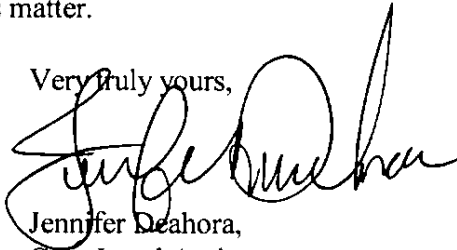 matter.
Very truly yours,
Jennifer Deahora,